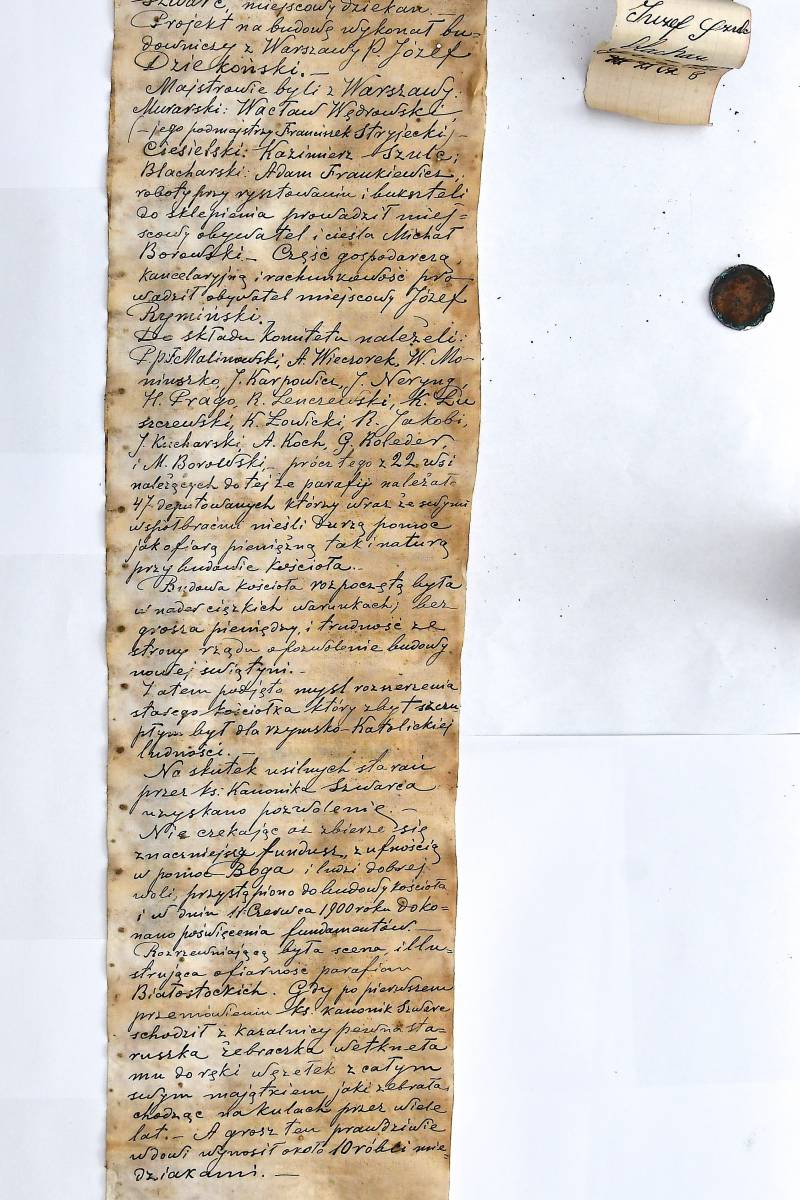 Szwarc, miejscowy dziekan. —
Projekt na budowę wykonał bu-
downiczy z Warszawy P. Józef
Dziekoński. —
Majstrowie byli z Warszawy:
Murarski: Wacław Wędrowski
(— jego podmajstrzy Franciszek Stryjecki, —
Ciesielski: Kazimierz Szulc;
Blacharski: Adam Frankiewicz,
roboty przy rysztowaniu i buksteli
do sklepienia prowadził miej-
scowy obywatel i cieśla Michał
Borowski. — Część gospodarczą,
kancelaryjną i rachunkowość pro
wadził obywatel miejscowy Józef
Rymiński.
Do składu komitetu należeli:
P.p. F. Malinowski, A. Wieczorek, W. Mo-
niuszko, J. Karpowicz, J. Neryng,
H. Prago, R. Lenczewski, K. Łu
szczewski, K. Łowicki, R. Jakobi,
J. Kucharski, A. Koch, G. Koleder,
i M. Borowski, — prócz tego z 22 wsi
należących do tej że parafij należał
47 deputowanych którzy wraz ze swymi
współbraćmi nieśli dużą pomoc
jak ofiarą pieniężną tak i naturą
przy budowie kościoła. —
Budowa kościoła rozpoczętą była
w nader ciężkich warunkach, bez
grosza pieniędzy, i trudność ze
strony rządu o pozwolenie budowy
nowej świątyni. —
Zatem podjęto myśl rozszerzenia
starego kościołka który zbyt szczu
płym był dla rzymsko-Katolickiej
ludności. —
Na skutek usilnych starań
przez ks: Kanonika Szwarca
uzyskano pozwolenie —
Nie czekając aż zbierze się
znaczniejszy fundusz, z ufnością
w pomoc Boga i ludzi dobrej
woli, przystąpiono do budowy kościoła
i w dniu 11 Czerwca 1900 roku doko-
nano poświęcenia fundamentów. —
Rozrzewniającą była scena, illu-
strująca ofiarność parafian
Białostockich. Gdy po pierwszem
przemówieniu ks. kanonik Szwarc
schodził z kazalnicy pewna sta-
ruszka żebraczka wetknęła
mu do ręki węzełek z całym
swym majątkiem jaki zebrała
chodząc na kulach przez wiele
lat. — A grosz ten prawdziwie
wdowi wynosił około 10 róbli mie-
dziakami. —
Józef Szulc